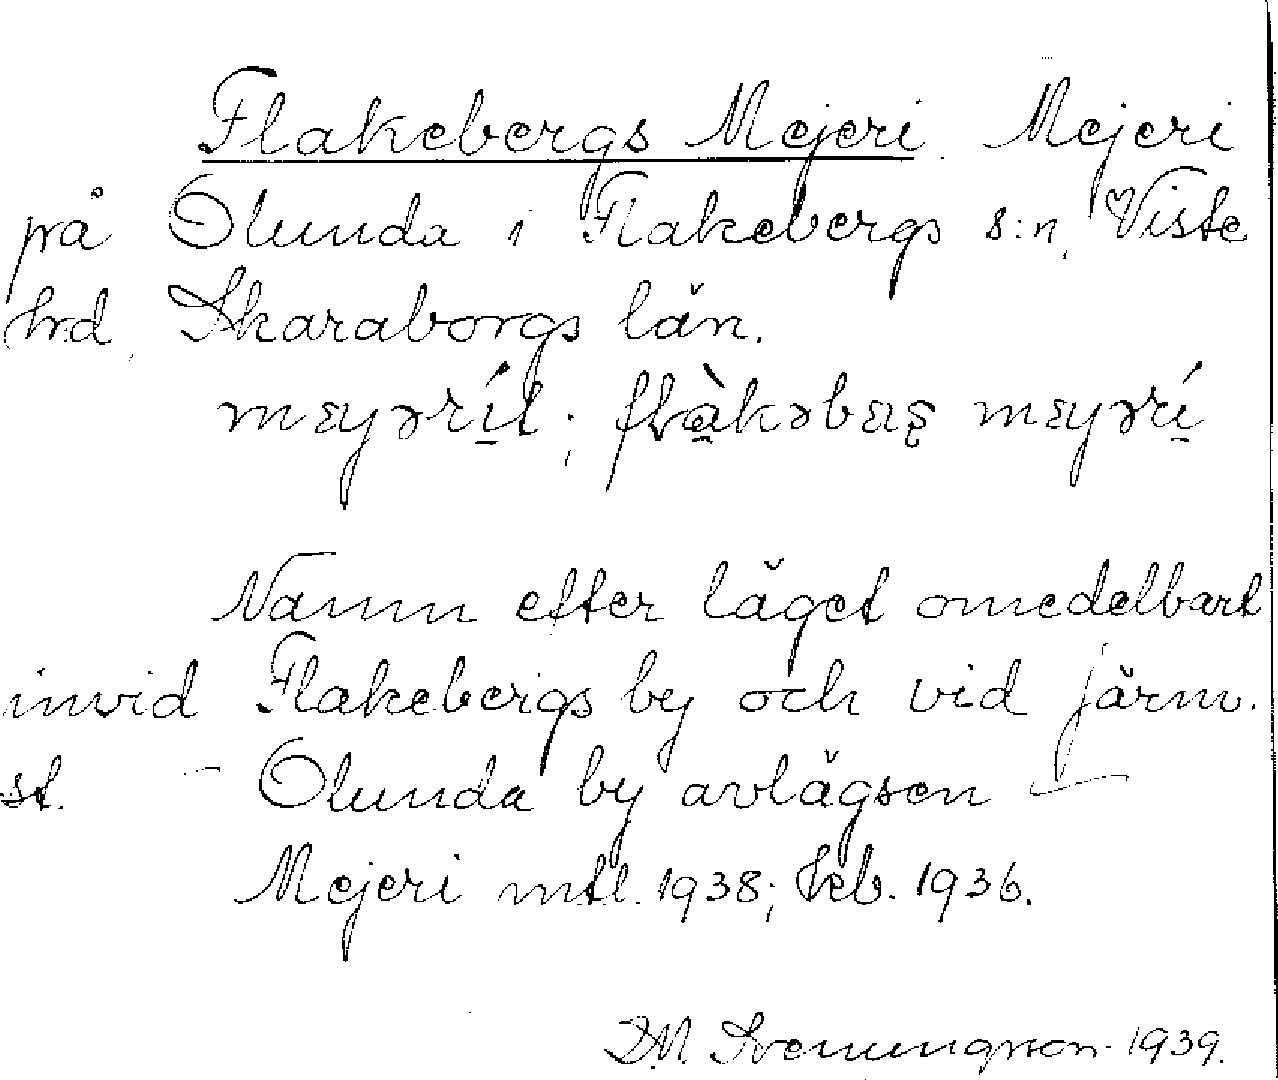 Flakebergs Mejeri. Mejeri
på Olunda i Flakebergs s:n, Viste
hrd, Skaraborgs län.
mɛyərít; flàkəbɛrs mɛyərí
Namn efter läget omedelbart
invid Flakebergs by och vid järnv.
st. – Olunda by avlägsen –
Mejeri mtl. 1938; Jeb. 1936.
D.M Svenungsson 1939.